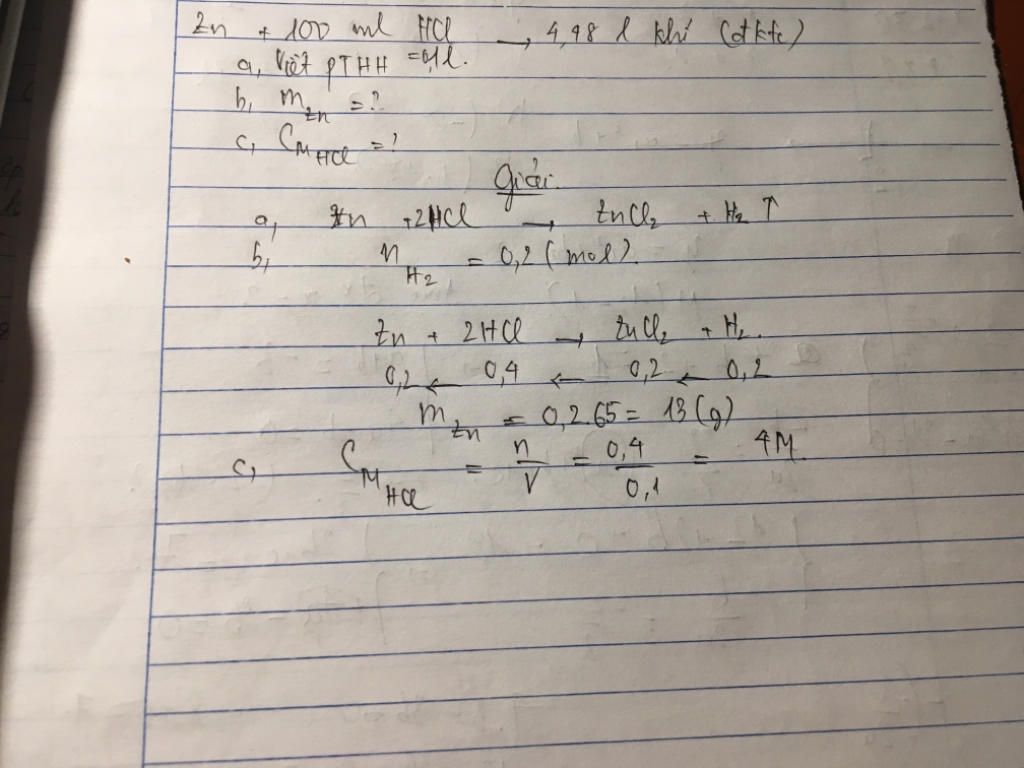 Zn + 100 ml HCl → 4,48 l khí (đktc)
a, Viết PTHH = 0,1l.
b, m Zn = ?
c, CM HCl = ?
Giải.
a, Zn + 2HCl → ZnCl2 + H2 ↑
b, n H2 = 0,2 (mol).
Zn + 2HCl → ZnCl2 + H2.
0,2 ← 0,4 ← 0,2 ← 0,2
m Zn = 0,2.65 = 13 (g)
c, CM HCl = n/V = 0,4/0,1 = 4M.